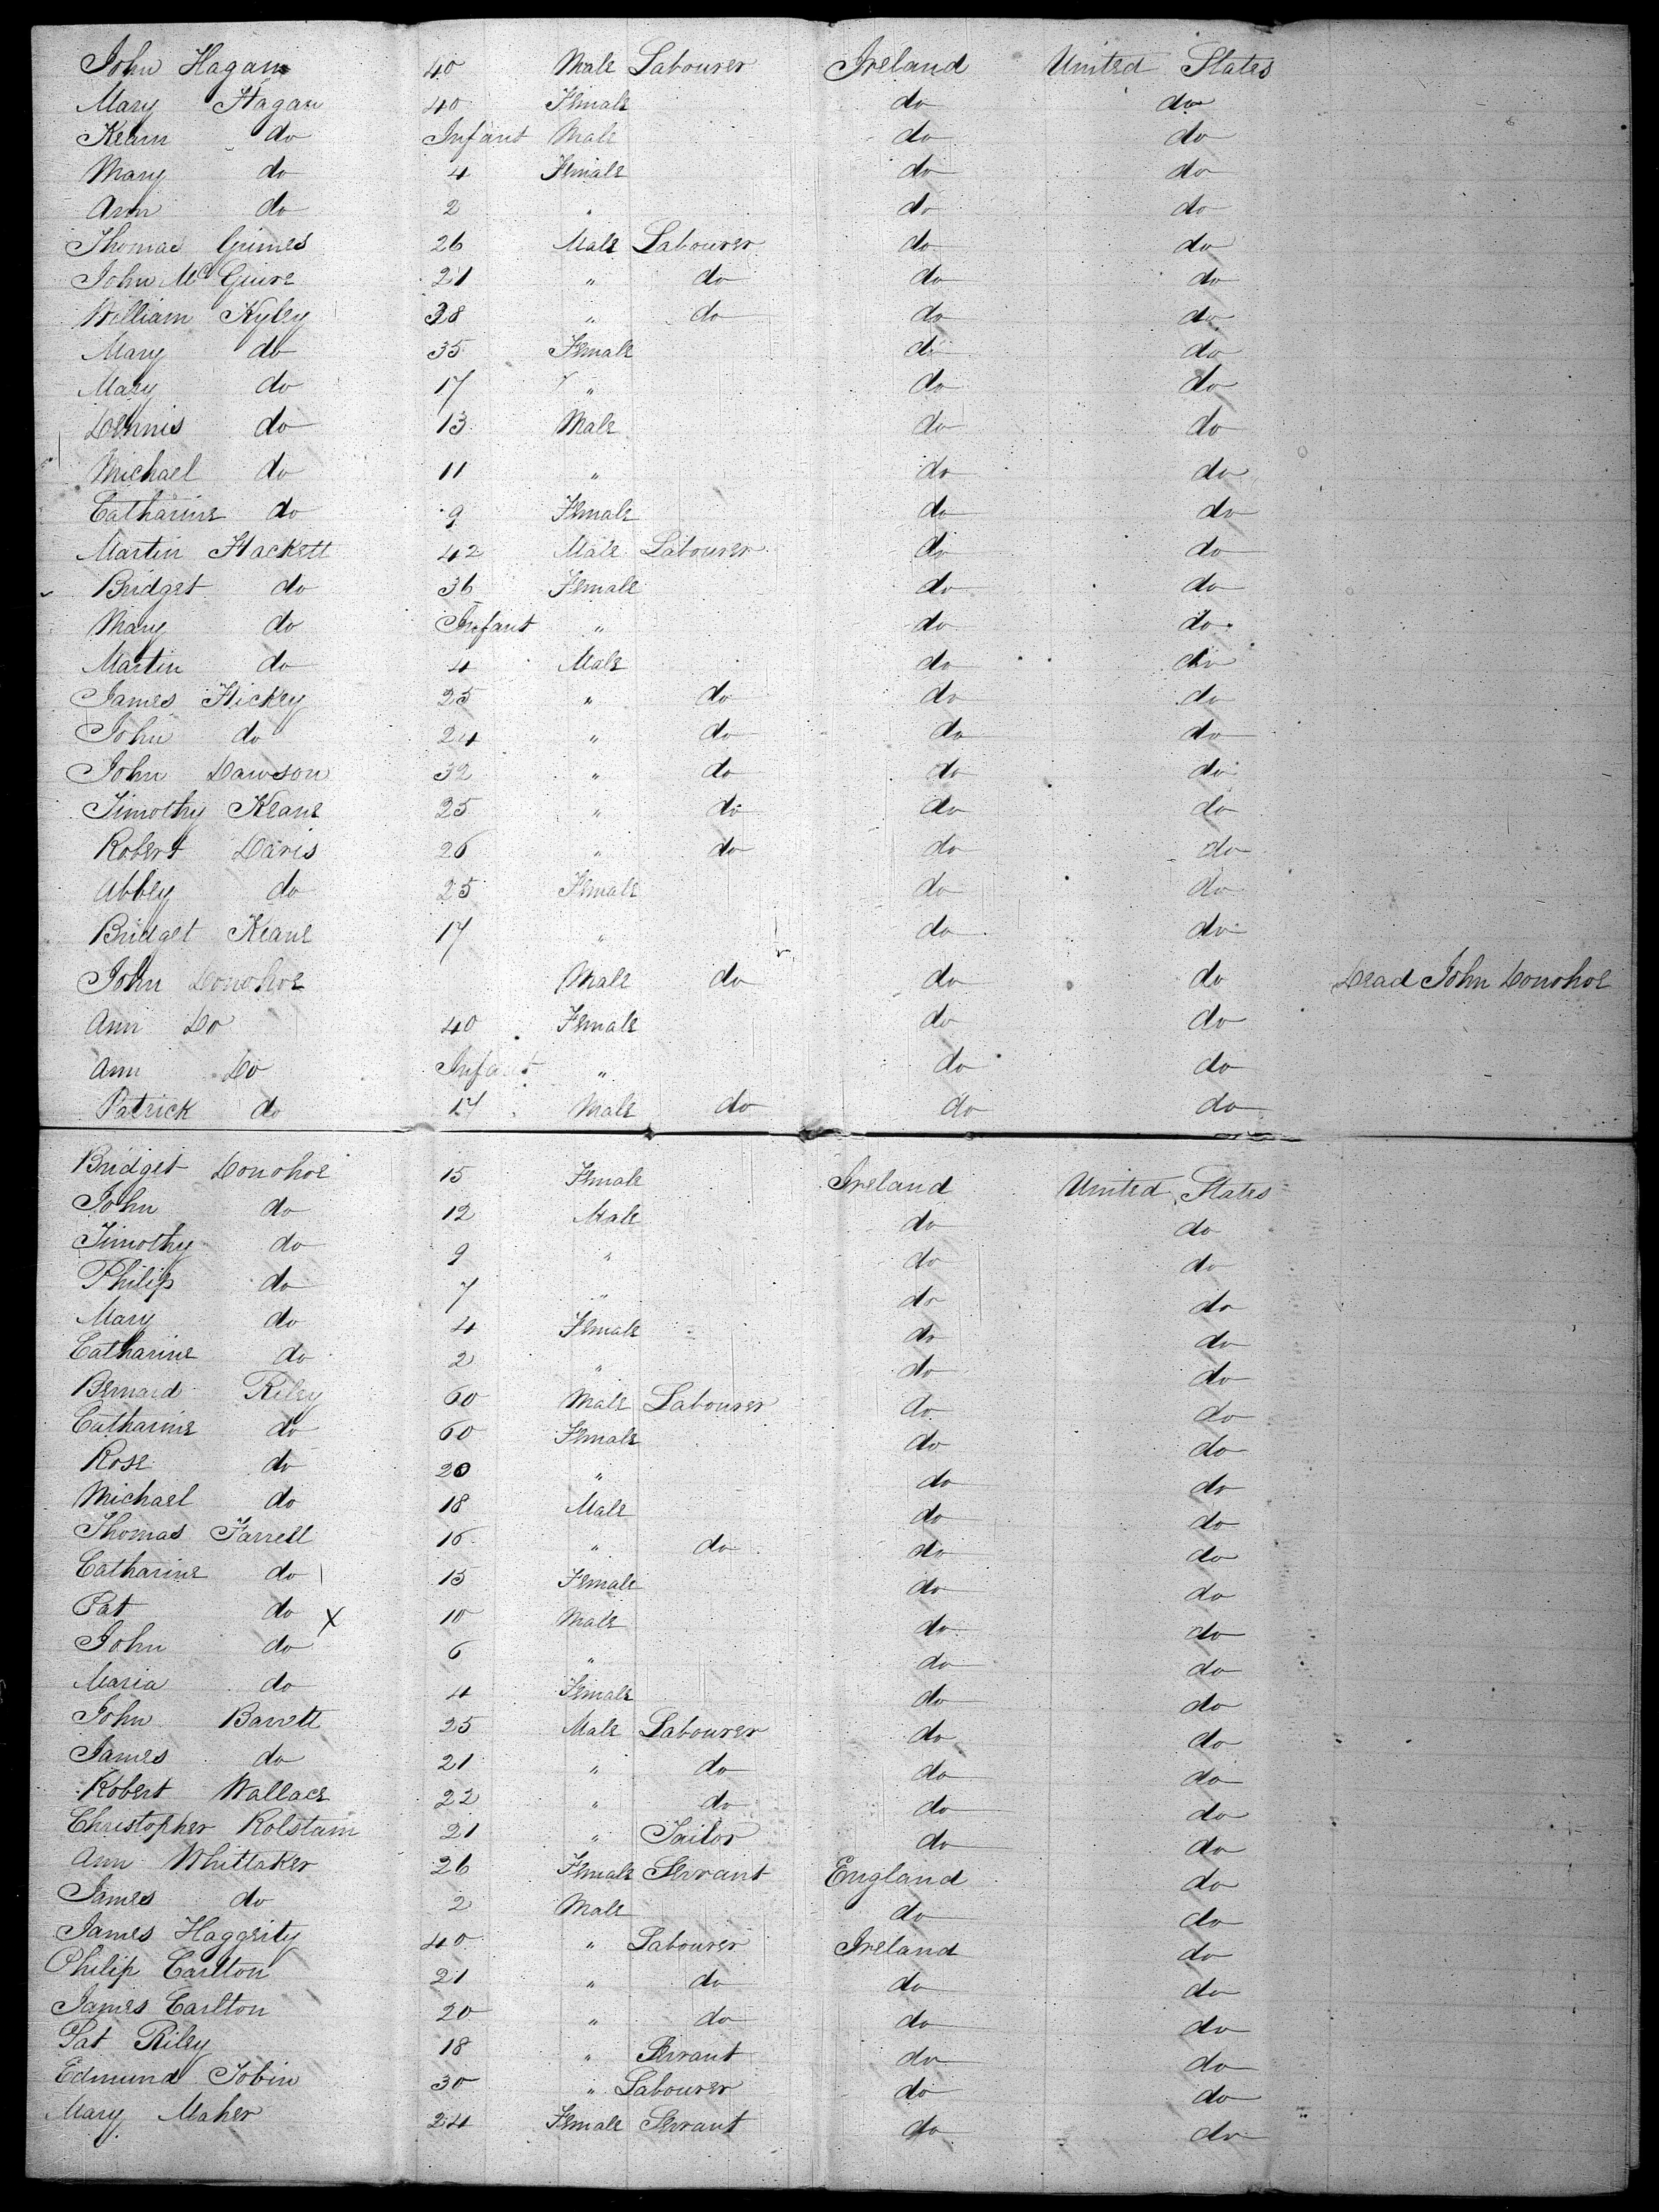 John Hagan 40 Male Labourer Ireland United States
Mary Hagan 40 Female do do
Keam do Infant Male do do
Mary do 4 Female do do
Ann do 2 " do do
Thomas Grimes 26 Male Labourer do do
John McGuire 21 " do do do
William Kyley 38 " do do do
Mary do 35 Female do do
Mary do 17 " do do
Dennis do 13 Male do do
Michael do 11 " do do
Catharine do 9 Female do do
Martin Hackett 42 Male Labourer do do
Bridget do 36 Female do do
Mary do Infant " do do
Martin do 4 Male do do
James Hickey 25 " do do do
John do 24 " do do do
John Dawson 32 " do do do
Timothy Keane 25 " do do do
Robert Davis 26 " do do do
Abbey do 25 Female do do
Bridget Keane 17 " do do
John Donohoe Male do do do Dead John Donohoe
Ann Do 40 Female do do
Ann Do Infant " do do
Patrick do 17 Male do do do
Bridget Donohoe 15 Female Ireland United States
John do 12 Male do do
Timothy do 9 " do do
Philip do 7 " do do
Mary do 4 Female do do
Catharine do 2 " do do
Bernard Riley 60 Male Labourer do do
Catharine do 60 Female do do
Rose do 20 " do do
Michael do 18 Male do do
Thomas Farrell 16 " do do do
Catharine do 15 Female do do
Pat do X 10 Male do do
John do 6 " do do
Maria do 4 Female do do
John Barrett 25 Male Labourer do do
James do 21 " do do do
Robert Wallace 22 " do do do
Christopher Rolstain 21 " Tailor do do
Ann Whittaker 26 Female Servant England do
James do 2 Male do do
James Haggerity 40 " Labourer Ireland do
Philip Carlton 21 " do do do
James Carlton 20 " do do do
Pat Riley 18 " Servant do do
Edmund Tobin 30 " Labourer do do
Mary Maher 24 Female Servant do do